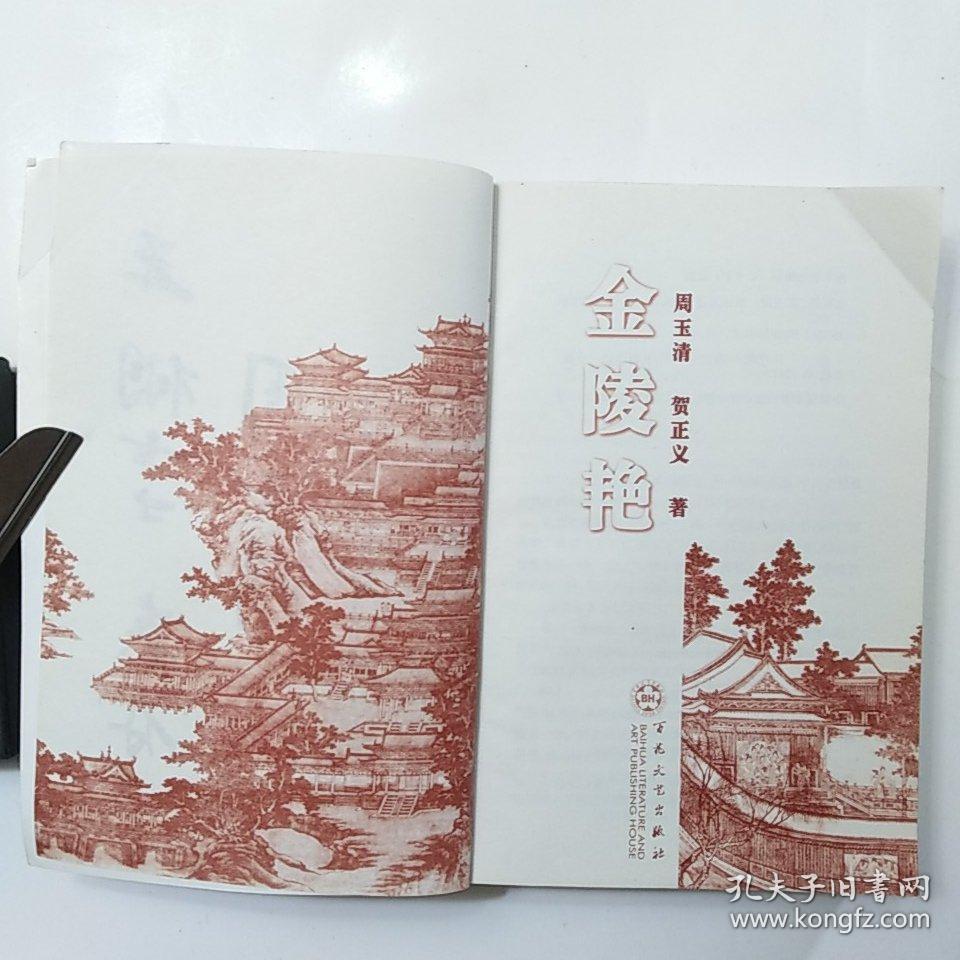 金陵艳
周玉清 贺正义 著
BH
百花文艺出版社
BAIHUA LITERATURE AND
ART PUBLISHING HOUSE
孔夫子旧書网
www.kongfz.com